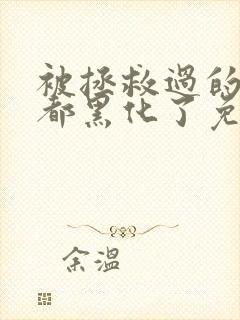 被拯救过的
都黑化了免
余温